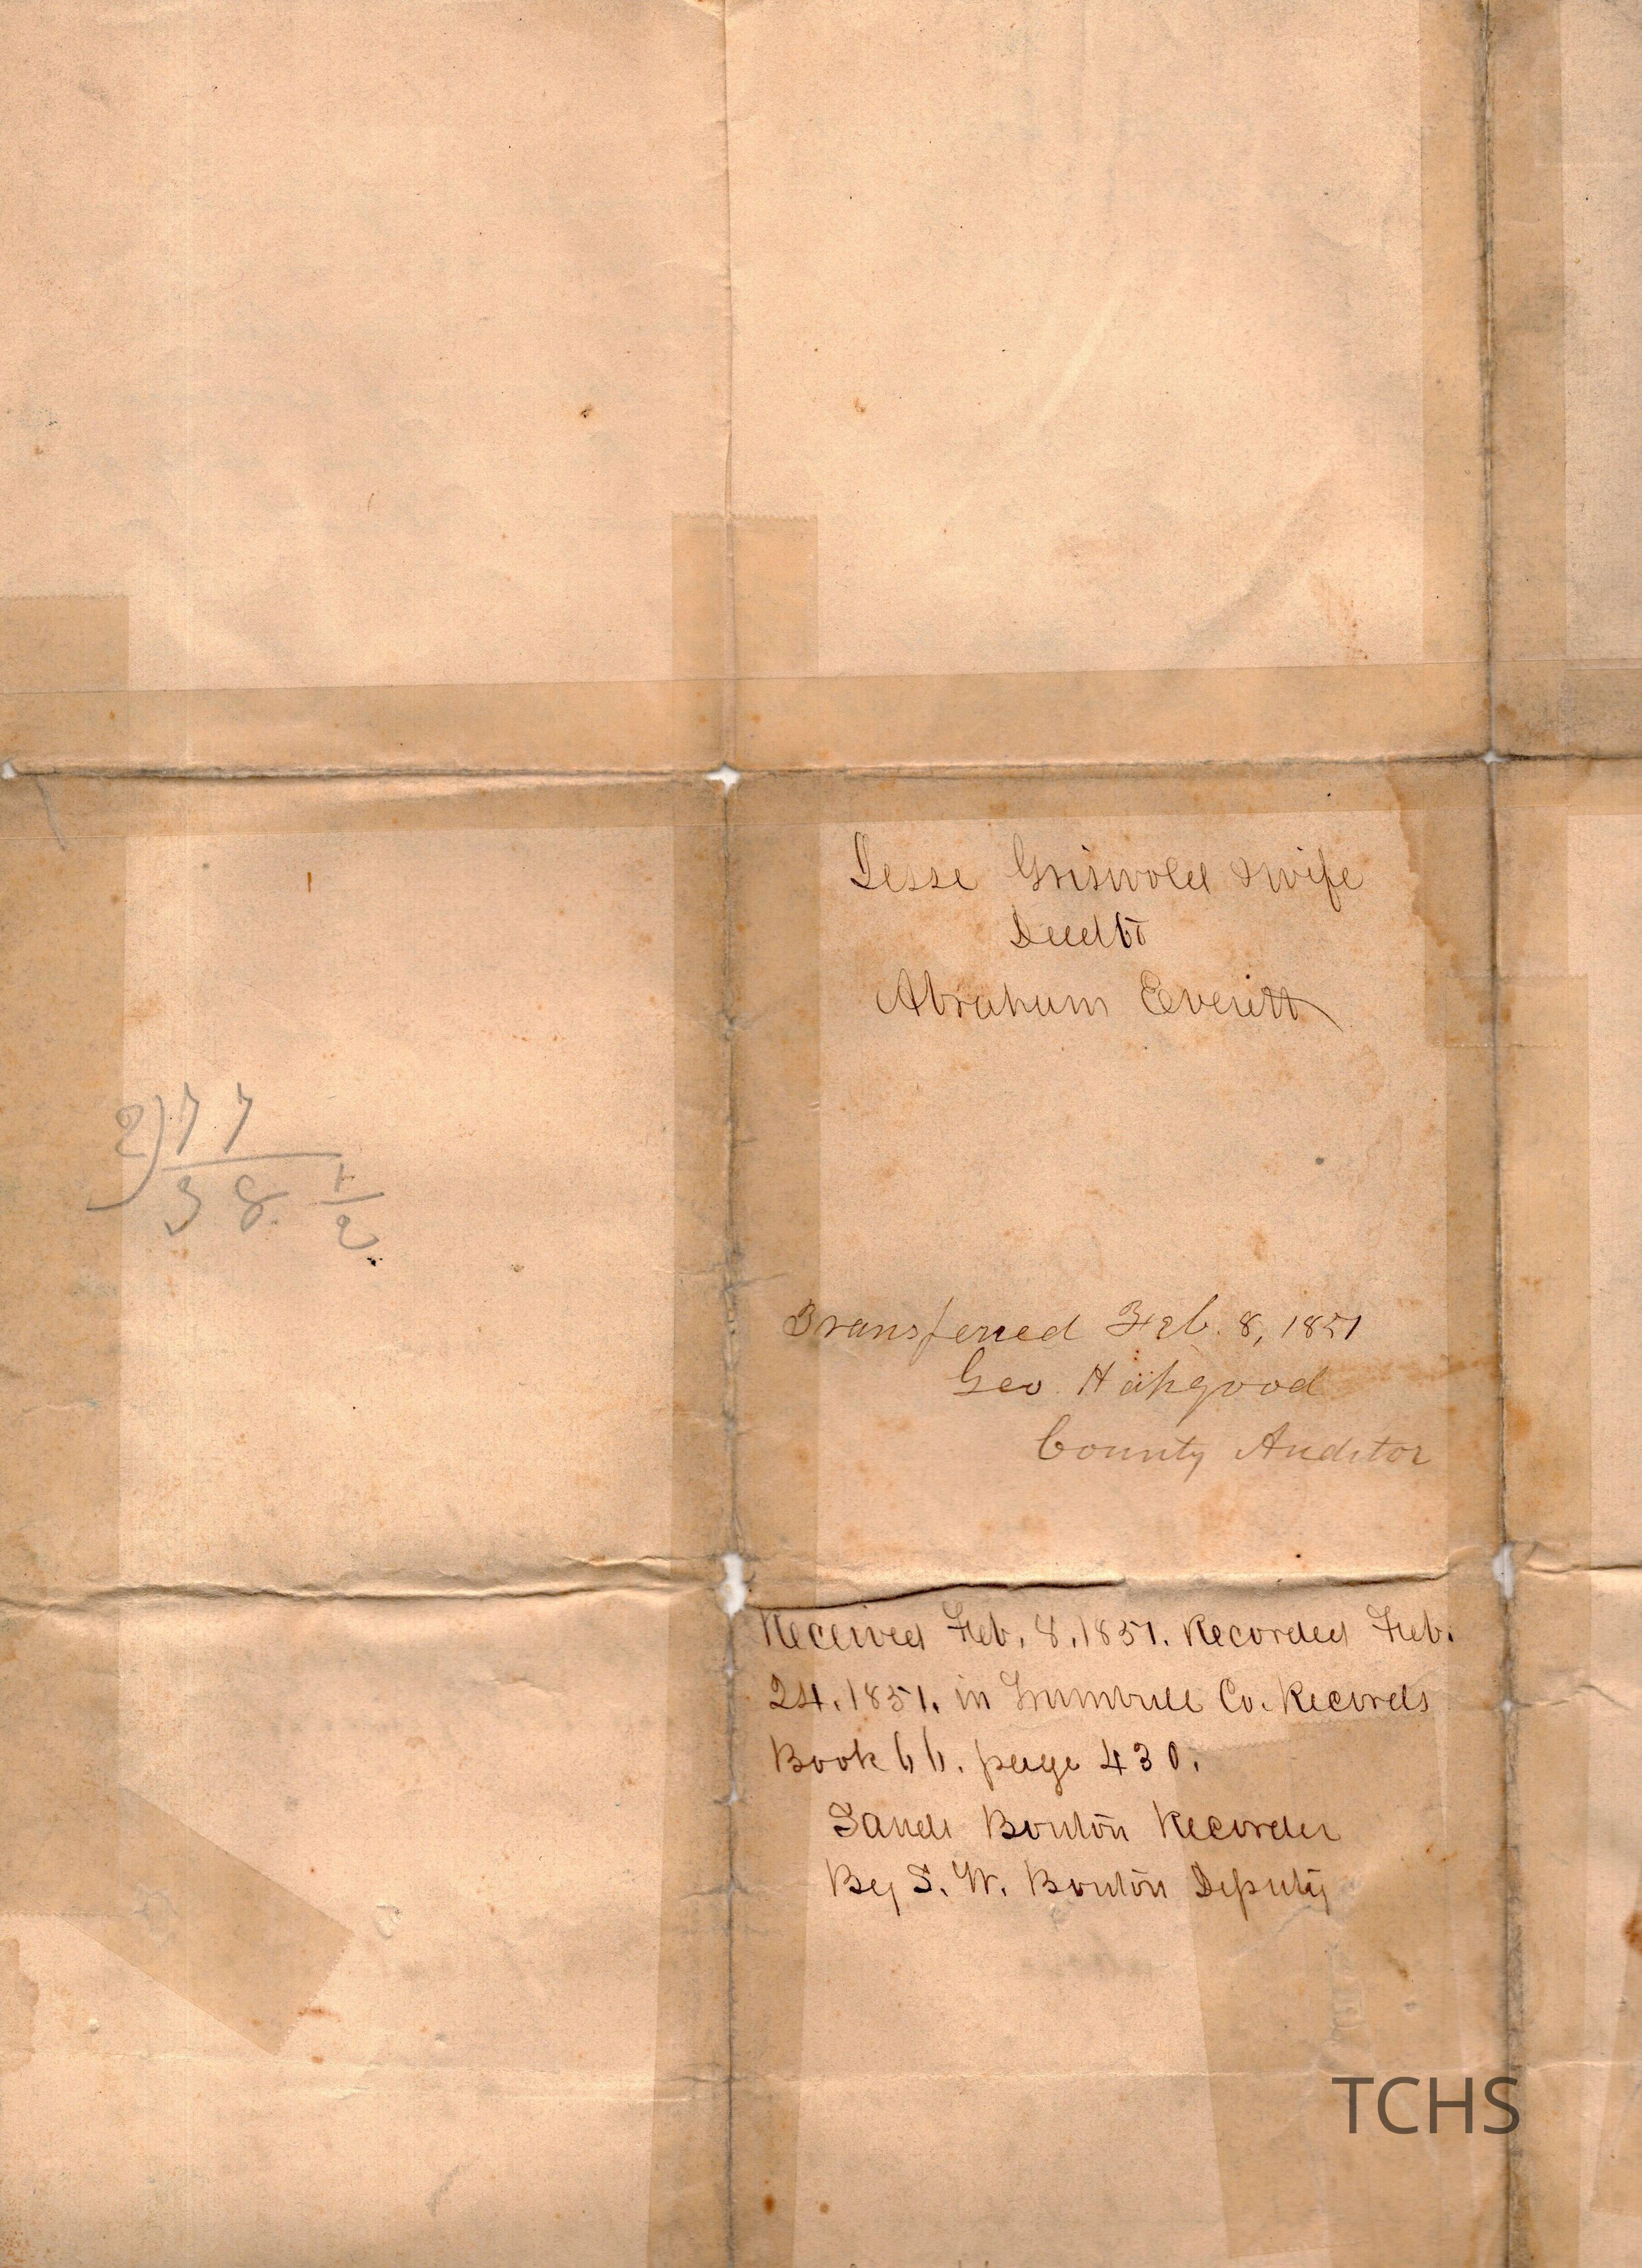 Jesse Griswold & wife
Deed to
Abraham Everitt
2)77
38 1/2
Transferred Feb. 8, 1851
Geo. Hapgood
County Auditor
Received Feb. 8. 1851. Recorded Feb.
24. 1851. in Trumbull Co. Records
Book 66. page 430.
Sands Bouton Recorder
By S. W. Bouton Deputy
TCHS